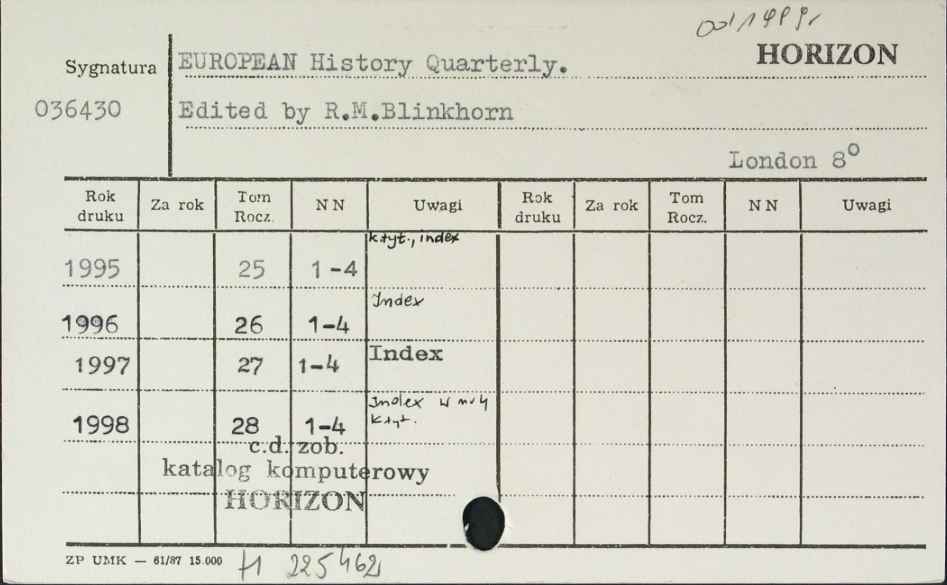 od 1999r
HORIZON
Sygnatura
036430
EUROPEAN History Quarterly.
Edited by R.M.Blinkhorn
London 8⁰
Rok druku Za rok Tom Rocz. NN Uwagi Rok druku Za rok Tom Rocz. NN Uwagi
1995 25 1-4 k.tyt., index
1996 26 1-4 Index
1997 27 1-4 Index
1998 28 1-4 Index w nr 4
k.tyt.
c.d. zob.
katalog komputerowy
HORIZON
ZP UMK — 61/87 15.000 H 225462